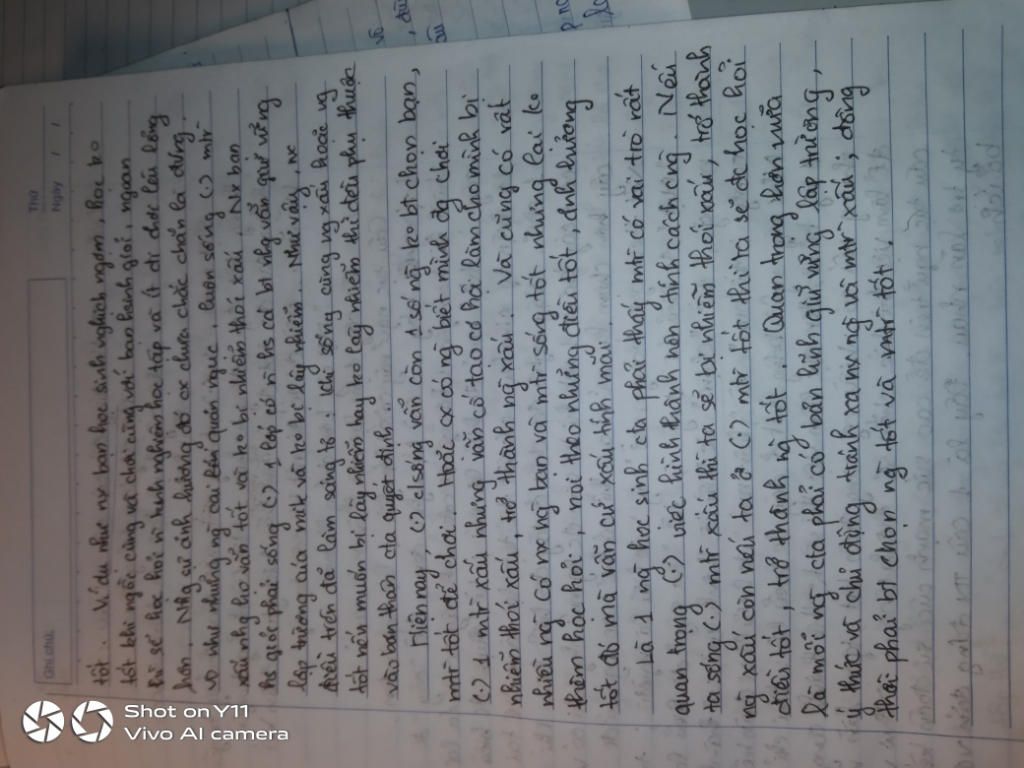 Thứ
Ngày / /
Ghi chú:
tốt. Ví dụ như nx bạn học sinh nghịch ngợm, học ko
tốt khi ngồi cùng và chơi cùng với bạn hành giỏi, ngoan
thì sẽ học hỏi vì kinh nghiệm học tập và ít đi chơi lêu lổng
hơn. Nhg sự ảnh hưởng đó cx chưa chắc chắn là đúng.
VD như những ng cai quản ngục, luôn sống (.) mtr
xấu nhg họ vẫn tốt và ko bị nhiễm thói xấu. Nx bạn
hs giỏi phải sống (.) 1 lớp có n` hs cá bị nhg vẫn giữ vững
lập trường của mik và ko bị lây nhiễm. Như vậy, nx
điều trên đã làm sáng tỏ: Khi sống cùng ng xấu hoặc ng
tốt nếu muốn bị lây nhiễm hay ko lây nhiễm thì đều phụ thuộc
vào bản thân cta quyết định.
Hiện nay, (.) c/sống vẫn còn 1 số ng ko bt chọn bạn,
mtr tốt để chơi. Hoặc cx có ng biết mình đg chơi
(.) 1 mtr xấu nhưng vẫn cố tạo cơ hội làm cho mình bị
nhiễm thói xấu, trở thành ng xấu. Và cũng có rất
nhiều ng có nx ng bạn và mtr sống tốt nhưng lại ko
thèm học hỏi, noi theo những điều tốt, ảnh hưởng
tốt đó mà vẫn cứ xấu tính mãi.
Là 1 ng học sinh cta phải thấy mtr có vai trò rất
quan trọng (.) việc hình thành nên tính cách cng. Nếu
ta sống (.) mtr xấu thì ta sẽ bị nhiễm thói xấu, trở thành
ng xấu còn nếu ta ở (.) mtr tốt thì ta sẽ đc học hỏi
điều tốt, trở thành ng tốt. Quan trọng hơn nữa
là mỗi ng cta phải có bản lĩnh giữ vững lập trường,
ý thức và chủ động tránh xa nx ng và mtr xấu; đồng
thời phải bt chọn ng tốt và mtr tốt.
Shot on Y11
Vivo AI camera